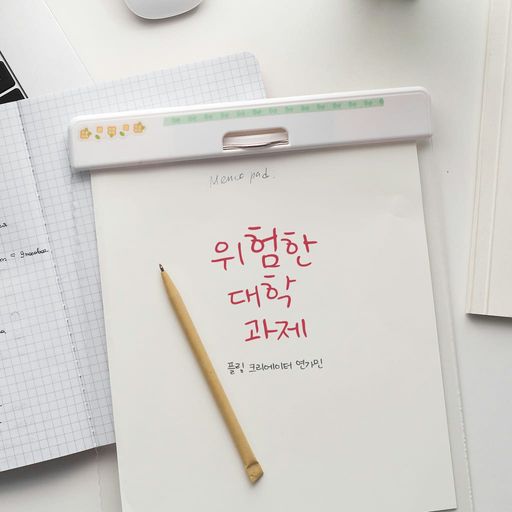 Memo pad.
위험한
대학
과제
플림 크리에이터 연가민